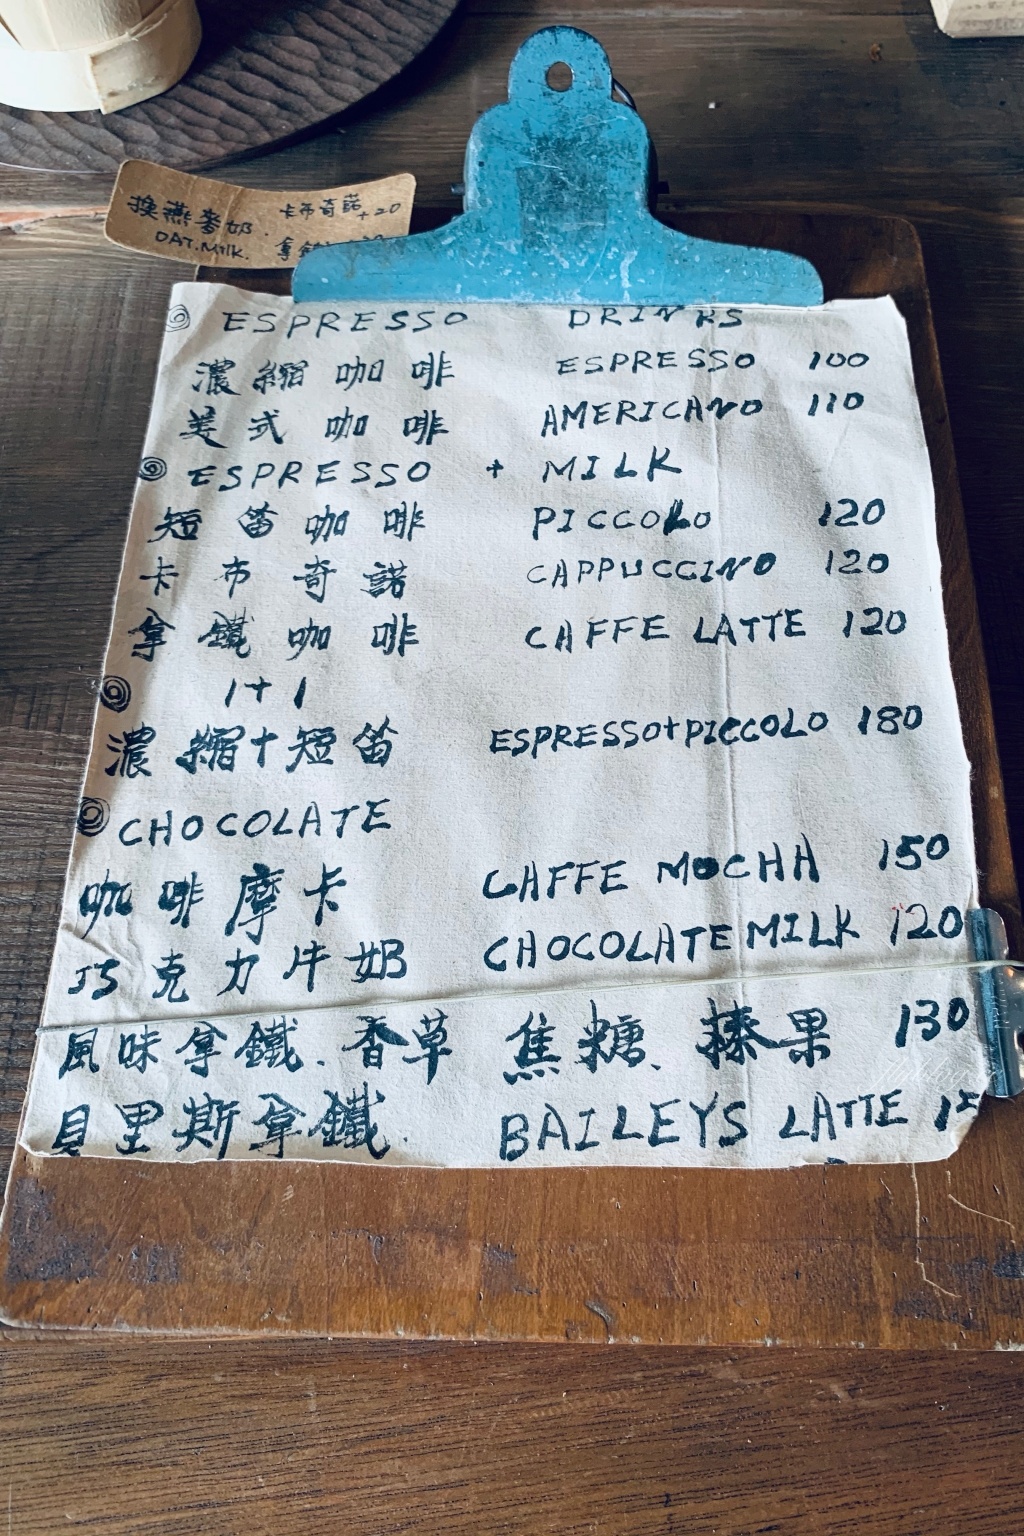 換燕麥奶. 卡布奇諾+20
OAT.Milk. 拿鐵
ESPRESSO DRINKS
濃縮咖啡 ESPRESSO 100
美式咖啡 AMERICANO 110
ESPRESSO + MILK
短笛咖啡 PICCOLO 120
卡布奇諾 CAPPUCCINO 120
拿鐵咖啡 CAFFE LATTE 120
1+1
濃縮+短笛 ESPRESSO+PICCOLO 180
CHOCOLATE
咖啡摩卡 CAFFE MOCHA 150
巧克力牛奶 CHOCOLATE MILK 120
風味拿鐵.香草 焦糖、榛果 130
貝里斯拿鐵. BAILEYS LATTE